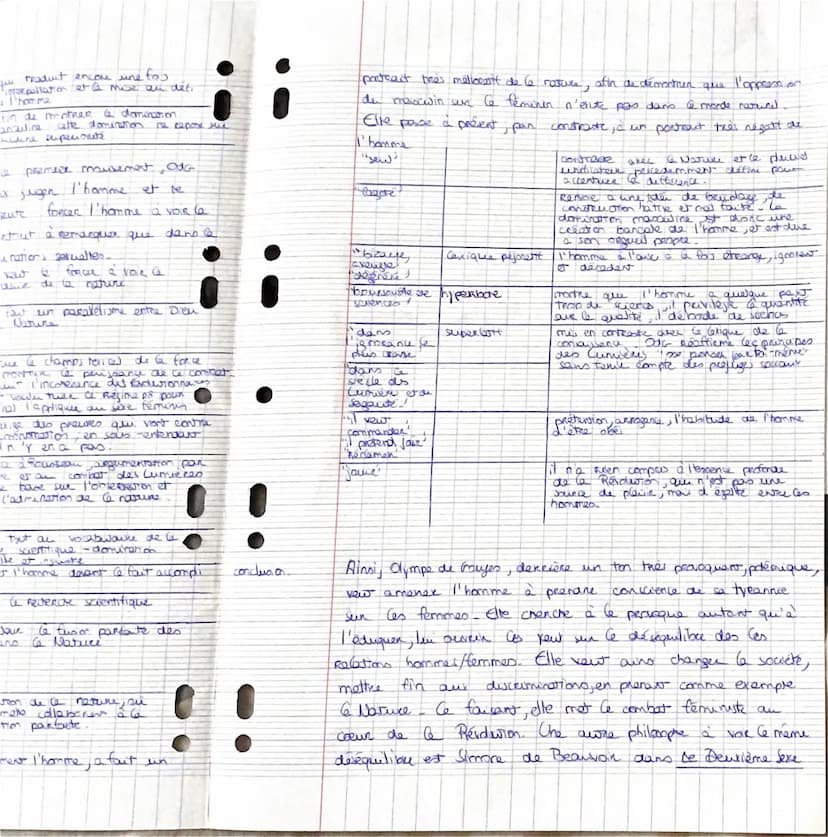 traduit encore une fois
interpellation et la mise au défi
l'homme
de montrer la domination
cette domination ne repose sur
supériorité
premier mouvement, OdG
juger l'homme et le
forcer l'homme à voir la
à remarquer que dans la
sexuelles.
le force à voir la
de la nature
un parallélisme entre Dieu
Nature
le champ lexical de la force
la puissance de ce combat
l'incohérence des Révolutionnaires
tuer ce Régime pr pour
l'appliquer au sexe féminin
des preuves qui vont contre
en sous-entendant
n'y en a pas.
à Rousseau, argumentation par
et au combat des Lumières
base sur l'observation et
l'admiration de la nature.
au vocabulaire de la
scientifique - domination
et
l'homme devant le fait accompli
la recherche scientifique
la fusion parfaite des
la Nature
de la nature, où
collaborent à la
parfaite.
l'homme, a fait un
portrait très mélioratif de la nature, afin de démontrer que l'oppression
du masculin sur le féminin n'existe pas dans le monde naturel.
Elle passe à présent, par contraste, à un portrait très négatif de
l'homme
"seul" contraste avec la Nature et le pluriel
précédemment défini pour
accentuer la différence.
"fagoté" Renvoie à une idée de bricolage, de
construction hâtive et mal faite. La
domination masculine est donc une
création bancale de l'homme, et est due
à son orgueil propre.
"bizarre, lexique péjoratif l'homme à l'air à la fois étrange, ignorant
aveugle et décadent
dégénéré"
"boursouflé de hyperbole montre que l'homme a quelque part
sciences" trop de science, il privilégie la quantité
sur la qualité, il déborde de
"dans superlatif mis en contraste avec le
l'ignorance la OdG Réaffirme les principes
plus crasse" des Lumières : penser par toi-même
dans ce sans tenir compte des préjugés sociaux
siècle des
Lumières et de
sagacité"
"il veut prétention, arrogance, l'habitude de l'homme
commander" d'être obéi
"il prétend jouir"
"réclamer"
"jouir" il n'a rien compris à l'essence profonde
de la Révolution, qui n'est pas une
source de plaisir, mais d'égalité entre les
hommes.
conclusion Ainsi, Olympe de Gouges, derrière un ton très provoquant, polémique,
veut amener l'homme à prendre conscience de sa tyrannie
sur les femmes. Elle cherche à le provoquer autant qu'à
l'éduquer, lui ouvrir les yeux sur le déséquilibre des les
Relations hommes/femmes. Elle veut ainsi changer la société,
mettre fin aux discriminations, en prenant comme exemple
la Nature. Ce faisant, elle met le combat féministe au
cœur de la Révolution. Une autre philosophe à voir le même
déséquilibre est Simone de Beauvoir dans Le Deuxième Sexe